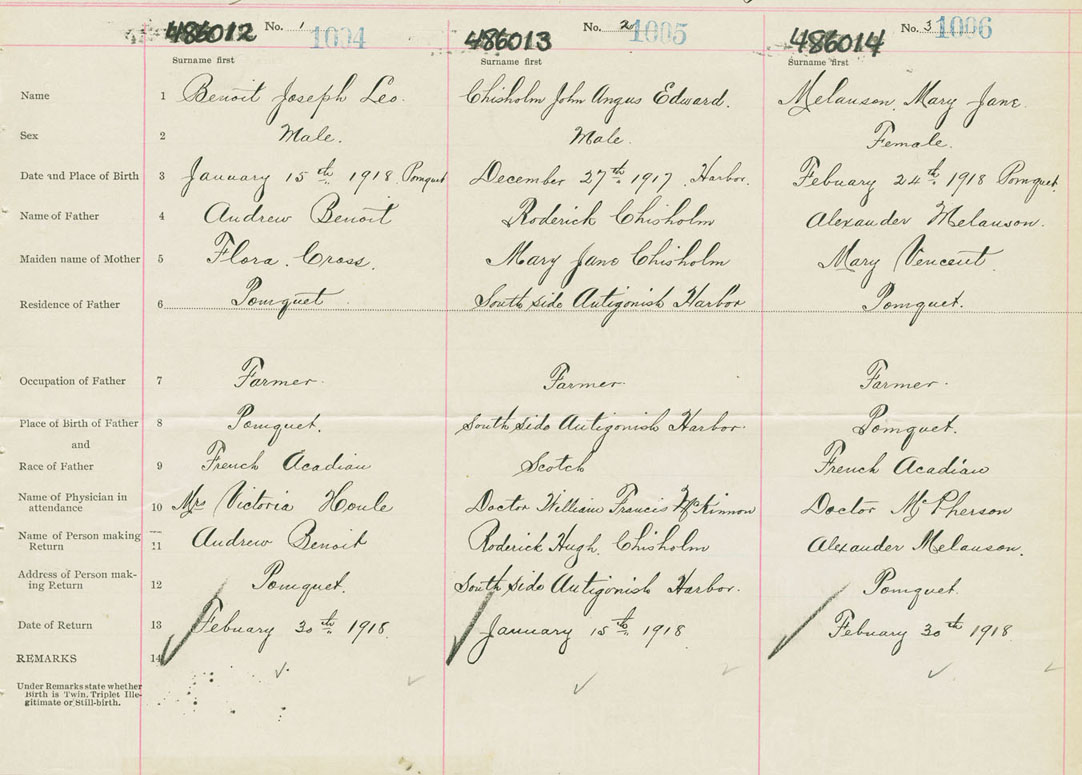 486012 No. 1 1004 486013 No. 2 1005 486014 No. 3 1006
Surname first Surname first Surname first
Name 1 Benoit Joseph Leo. Chisholm John Angus Edward. Melauson, Mary Jane.
Sex 2 Male. Male. Female.
Date and Place of Birth 3 January 15th 1918 Pomquet December 27th 1917 Harbor. Febuary 24th 1918 Pomquet.
Name of Father 4 Andrew Benoit Roderick Chisholm Alexander Melauson.
Maiden name of Mother 5 Flora Cross. Mary Jane Chisholm Mary Vencent
Residence of Father 6 Pomquet South side Antigonish Harbor Pomquet.
Occupation of Father 7 Farmer. Farmer. Farmer.
Place of Birth of Father 8 Pomquet. South side Antigonish Harbor. Pomquet.
and
Race of Father 9 French Acadian Scotch French Acadian
Name of Physician in
attendance 10 Mrs Victoria Houle Doctor William Francis McKinnon Doctor McPherson
Name of Person making
Return 11 Andrew Benoit Roderick Hugh Chisholm Alexander Melauson.
Address of Person mak-
ing Return 12 Pomquet. South side Antigonish Harbor. Pomquet.
Date of Return 13 Febuary 30th 1918. January 15th 1918 Febuary 30th 1918.
REMARKS 14
Under Remarks state whether
Birth is Twin, Triplet Ille-
gitimate or Still-birth.